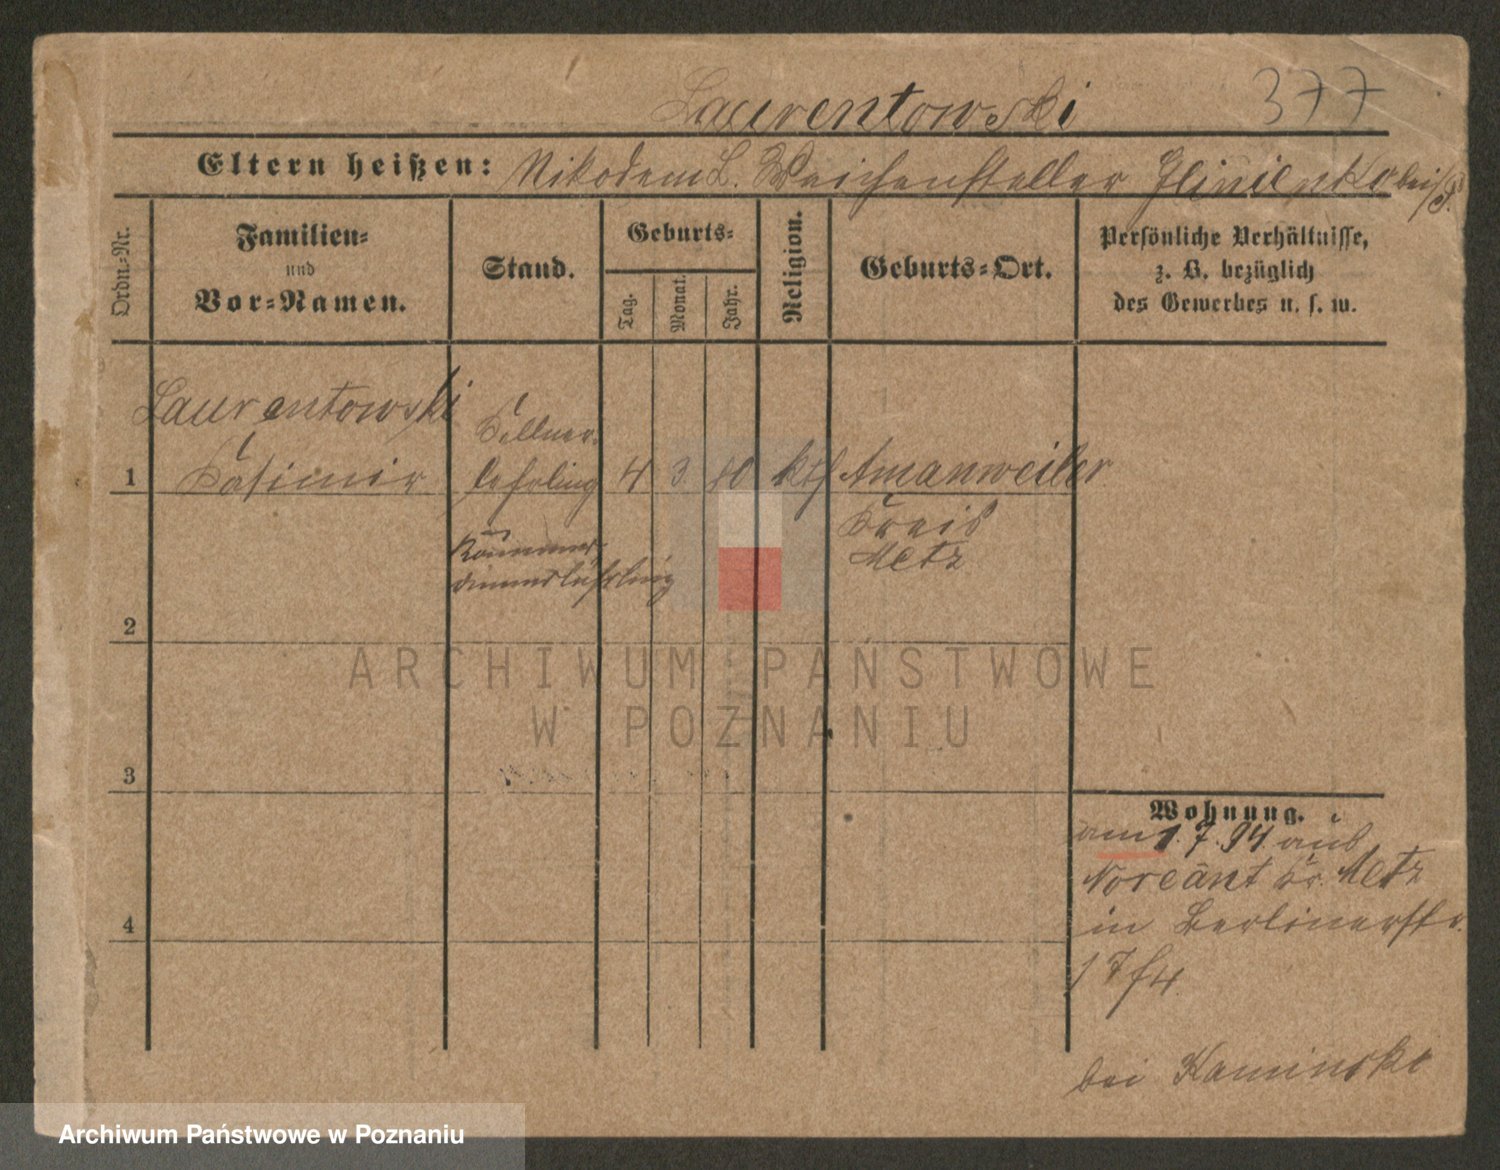 Laurentowski
377
Eltern heißen: Nikodem L. Weichensteller Glinienko bei
Ordn.-Nr.
Familien-
und
Vor-Namen.
Stand.
Geburts-
Tag.
Monat.
Jahr.
Religion.
Geburts-Ort.
Persönliche Verhältnisse,
z. B. bezüglich
des Gewerbes u. s. w.
Laurentowski
1 Casimir
Kellner-
lehrling 4 3. 80 kth Amanweiler
Kreis
Metz
2
3
4
Wohnung.
am 1.7.94. aus
Noveant Kr. Metz
in Berlinerstr.
bei Kaminski
ARCHIWUM PAŃSTWOWE
W POZNANIU
Archiwum Państwowe w Poznaniu